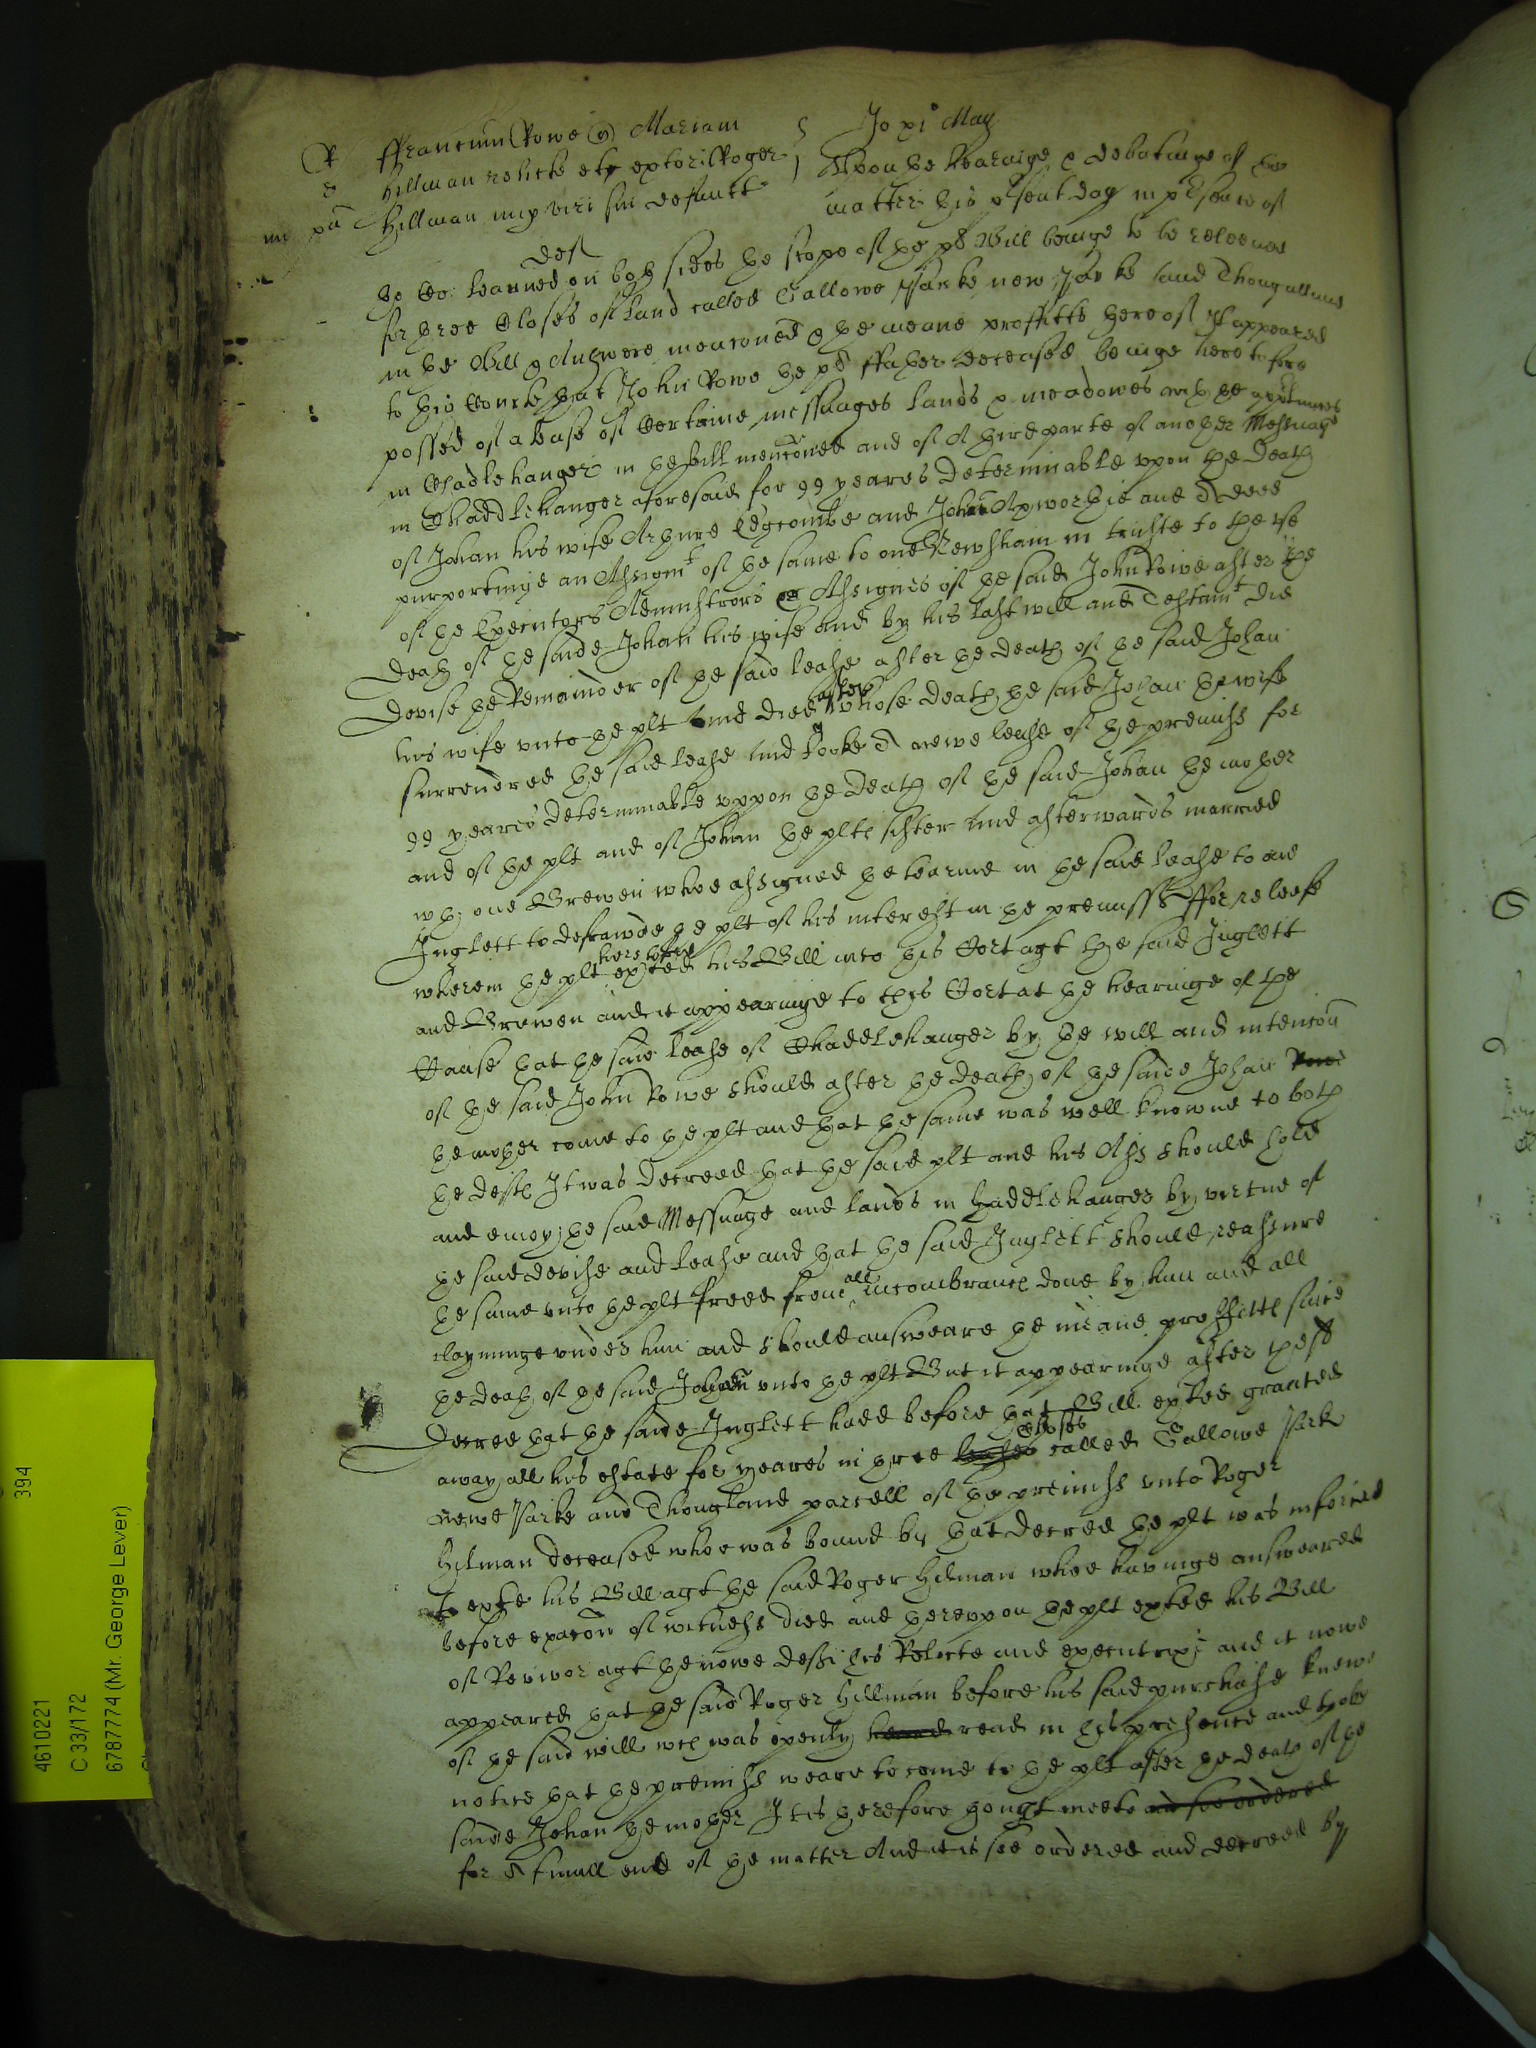 R ffrancum Rowe q Mariam Jo xi° May
Hillman relicte et extorii Roger Upon þe hearinge & debatinge of
Hillman nup viri sui defuncti matter þis psent day in psence of
def
þe Co: learned on boþ sides þe scope of þe pts Bill beinge to be releeved
for þree Closes of land called Gallowe Parke new Parke and Thongland
in þe Bill & Answere mencioned & þe meane proffitts þereof It appeared
to þis Courte þat John Rowe þe pts ffaþer deceased beinge heretofore
possed of a lease of Certaine messuages lands & meadowes wth þe apptunncs
in Chadlehanger in þe bill mencioned and of A þird parte of anoþer Messuage
in Chaddlehanger aforesaid for 99 yeares determinable upon the death
of Johan his wife Arþure Edgcombe and John Apworþie and A deed
purportinge an Assignmt of þe same to one Newsham in truste to the use
of þe Executors Administrors or Assignes of þe said John Rowe after þe
deaþ of þe saide Johan his wife and by his last will and Testamt did
devise þe Remainder of þe said lease after þe death of þe said Johan
his wife unto þe plt and died after whose death þe said Johan þe wife
surrendred þe said lease and tooke A newe lease of þe premiss for
99 yeares determinable uppon þe death of þe said Johan þe moþer
and of þe plt and of Johan þe plts sister and afterwards married
wth one Brewen whoe assigned þe tearme in þe said lease to one
Inglett to defrawde þe plt of his interest in þe premisss ffor releefe
wherein þe plt heretofore exted his Bill into þis Cort agt the said Inglett
and Brewen and it appearinge to this Cort at þe hearinge of the
Cause þat þe said lease of Chaddlehanger by þe will and intencon
of þe said John Rowe should after þe death of þe saide Johan
þe moþer come to þe plt and þat þe same was well knowne to both
þe defts It was decreed þat þe said plt and his Ass should hold
and enioy þe said Messuage and lands in Chaddlehanger by virtue of
þe said devise and lease and þat þe said Inglett should reassure
þe same unto þe plt freed from all incombrance done by him and all
clayminge under him and should answeare þe meane proffitts since
þe deaþ of þe said Johan unto þe plt But it appearinge after the sd
decree þat þe saide Inglett hadd before þat Bill exted granted
away all his estate for yeares in þree leases Closes called Gallowe Parke
newe Parke and Thongland parcell of þe premiss unto Roger
Hilman deceased whoe was bound by þat decree þe plt was inforced
to exte his Bill agt þe said Roger Hilman whoe havinge answeared
before exacon of witness died and þereuppon þe plt exted his Bill
of Revivor agt þe nowe deft his Relicte and executrix and it nowe
appeared þat þe said Roger Hillman before his said purchase knewe
of þe said will wch was openly heard read in his presence and tooke
notice þat þe premiss weare to come to þe plt after þe death of þe
saide Johan þe moþer It is þerefore þought meete and soe ordered
for A finall end of þe matter And it is soe ordered and decreed by
4610221
C 33/172
6787774 (Mr. George Lever)
394